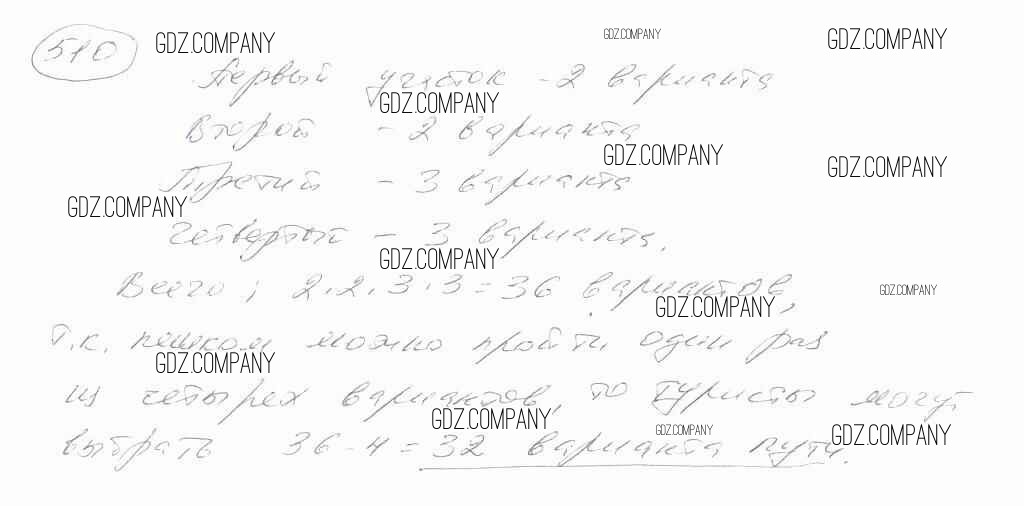 510 GDZ.COMPANY GDZ.COMPANY GDZ.COMPANY
Первый участок - 2 варианта
GDZ.COMPANY
Второй - 2 варианта
GDZ.COMPANY GDZ.COMPANY
Третий - 3 варианта
GDZ.COMPANY
Четвертый - 3 варианта.
GDZ.COMPANY
Всего; 2.2.3.3 = 36 вариантов,
GDZ.COMPANY GDZ.COMPANY
т.к. пешком можно пройти один раз
GDZ.COMPANY
из четырех вариантов, то туристы могут
GDZ.COMPANY GDZ.COMPANY GDZ.COMPANY
выбрать 36 - 4 = 32 варианта пути.